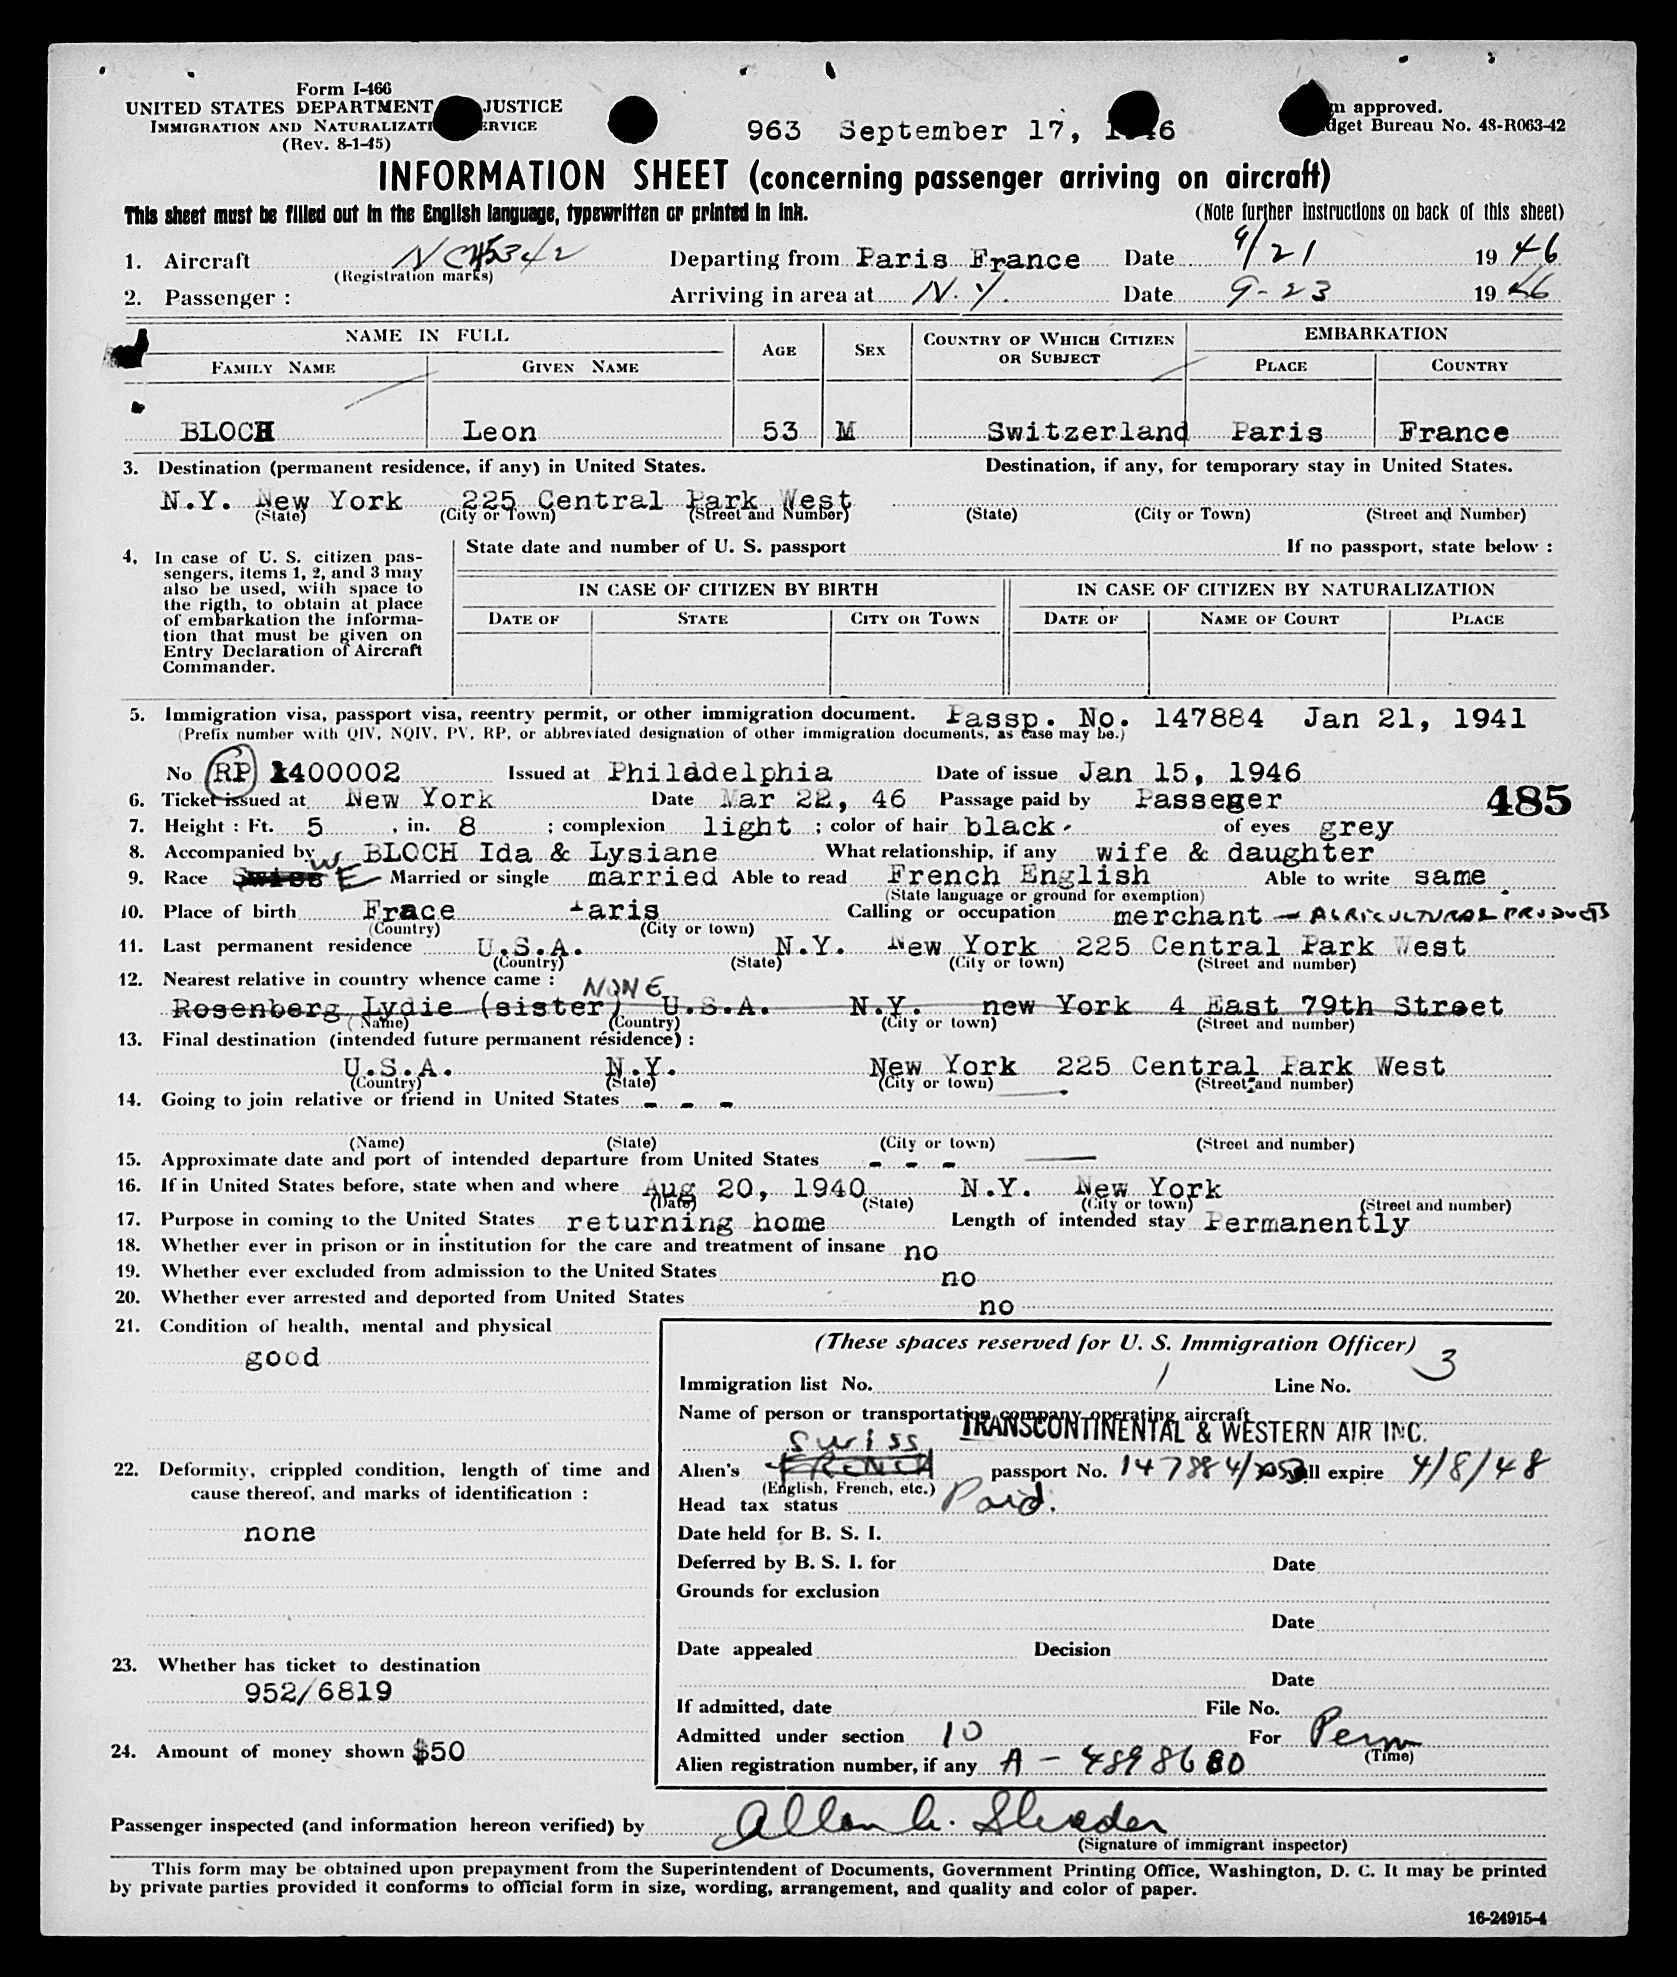 Form I-466
UNITED STATES DEPARTMENT JUSTICE
IMMIGRATION AND NATURALIZATI ERVICE
(Rev. 8-1-45)
963 September 17, 1946
m approved.
dget Bureau No. 43-R063-42
INFORMATION SHEET (concerning passenger arriving on aircraft)
This sheet must be filled out in the English language, typewritten or printed in ink.
(Note further instructions on back of this sheet)
1. Aircraft Departing from Paris France Date 9/21 1946
(Registration marks)
2. Passenger : Arriving in area at N.Y. Date 9-23 1946
NAME IN FULL AGE SEX COUNTRY OF WHICH CITIZEN OR SUBJECT EMBARKATION
FAMILY NAME GIVEN NAME PLACE COUNTRY
BLOCH Leon 53 M Switzerland Paris France
3. Destination (permanent residence, if any) in United States. Destination, if any, for temporary stay in United States.
N.Y. New York 225 Central Park West
(State) (City or Town) (Street and Number) (State) (City or Town) (Street and Number)
4. In case of U. S. citizen pas-
sengers, items 1, 2, and 3 may
also be used, with space to
the rigth, to obtain at place
of embarkation the informa-
tion that must be given on
Entry Declaration of Aircraft
Commander.
State date and number of U. S. passport If no passport, state below :
IN CASE OF CITIZEN BY BIRTH IN CASE OF CITIZEN BY NATURALIZATION
DATE OF STATE CITY OR TOWN DATE OF NAME OF COURT PLACE
5. Immigration visa, passport visa, reentry permit, or other immigration document. Passp. No. 147884 Jan 21, 1941
(Prefix number with QIV, NQIV, PV, RP, or abbreviated designation of other immigration documents, as case may be.)
No RP 1400002 Issued at Philadelphia Date of issue Jan 15, 1946
6. Ticket issued at New York Date Mar 22, 46 Passage paid by Passeger 485
7. Height : Ft. 5 , in. 8 ; complexion light ; color of hair black. of eyes grey
8. Accompanied by BLOCH Ida & Lysiane What relationship, if any wife & daughter
9. Race Swiss WE Married or single married Able to read French English Able to write same
(State language or ground for exemption)
10. Place of birth Frace Paris Calling or occupation merchant - AGRICULTURAL PRODUCTS
(Country) (City or town)
11. Last permanent residence U.S.A. N.Y. New York 225 Central Park West
(Country) (State) (City or town) (Street and number)
12. Nearest relative in country whence came : NONE
Rosenberg Lydie (sister) U.S.A. N.Y. new York 4 East 79th Street
(Name) (Country) (City or town) (Street and number)
13. Final destination (intended future permanent résidence) :
U.S.A. N.Y. New York 225 Central Park West
(Country) (State) (City or town) (Street and number)
14. Going to join relative or friend in United States - - -
(Name) (State) (City or town) (Street and number)
15. Approximate date and port of intended departure from United States - - -
16. If in United States before, state when and where Aug 20, 1940 N.Y. New York
(Date) (State) (City or town) (Street and number)
17. Purpose in coming to the United States returning home Length of intended stay Permanently
18. Whether ever in prison or in institution for the care and treatment of insane no
19. Whether ever excluded from admission to the United States no
20. Whether ever arrested and deported from United States no
21. Condition of health, mental and physical
good
(These spaces reserved for U. S. Immigration Officer)
Immigration list No. 1 Line No. 3
Name of person or transportation company operating aircraft
TRANSCONTINENTAL & WESTERN AIR INC.
Swiss
22. Deformity, crippled condition, length of time and
cause thereof, and marks of identification :
none
Alien's FRENCH passport No. 147884/ will expire 4/8/48
(English, French, etc.)
Head tax status Paid.
Date held for B. S. I.
Deferred by B. S. I. for Date
Grounds for exclusion
Date
Date appealed Decision
Date
23. Whether has ticket to destination
952/6819
If admitted, date File No.
Admitted under section 10 For Perm
(Time)
24. Amount of money shown $50
Alien registration number, if any A - 4898680
Passenger inspected (and information hereon verified) by Allen
(Signature of immigrant inspector)
This form may be obtained upon prepayment from the Superintendent of Documents, Government Printing Office, Washington, D. C. It may be printed
by private parties provided it conforms to official form in size, wording, arrangement, and quality and color of paper.
16-24915-4